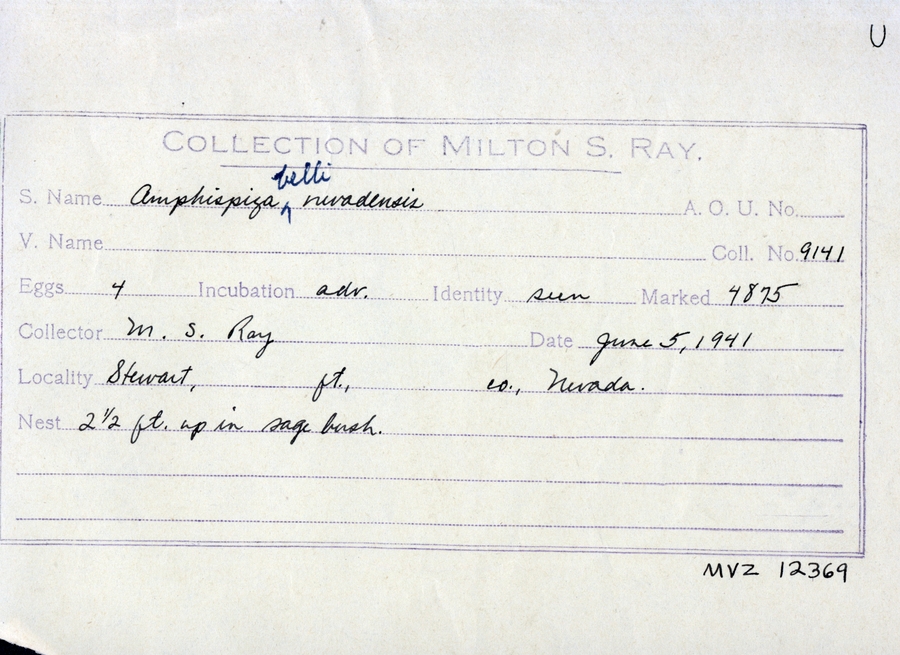 U
COLLECTION OF MILTON S. RAY.
belli
S. Name Amphispiza ^ nevadensis A. O. U. No.
V. Name Coll. No. 9141
Eggs 4 Incubation adv. Identity seen Marked 4875
Collector M. S. Ray Date June 5, 1941
Locality Stewart, ft., co., Nevada.
Nest 2 1/2 ft. up in sage bush.
MVZ 12369